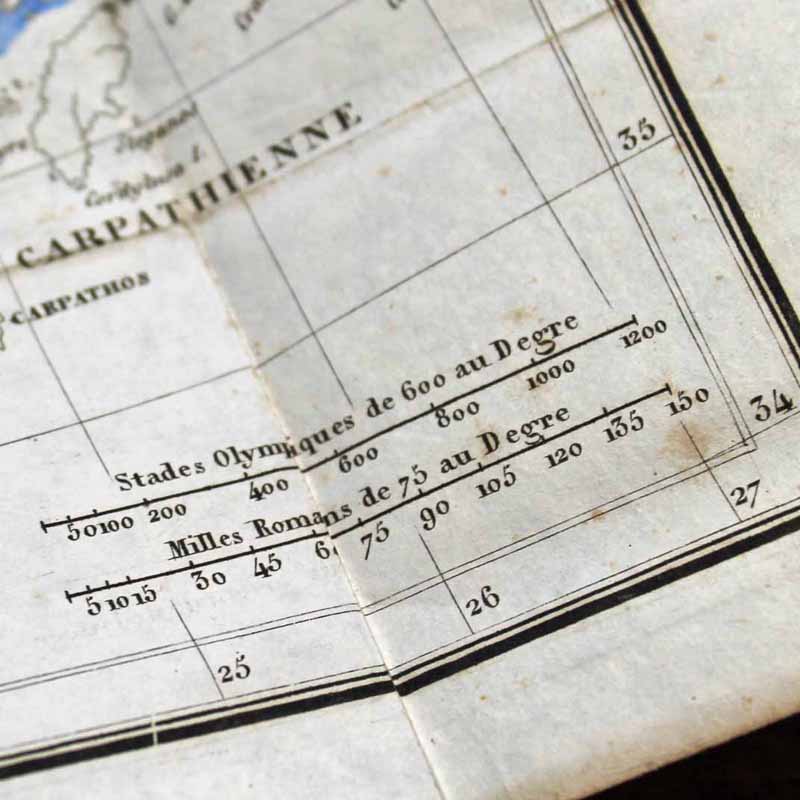 35
CARPATHIENNE
CARPATHOS
Stades Olympiques de 600 au Degre
50 100 200 400 600 800 1000 1200
Milles Romains de 75 au Degre
5 10 15 30 45 6 75 90 105 120 135 150
34
27
26
25